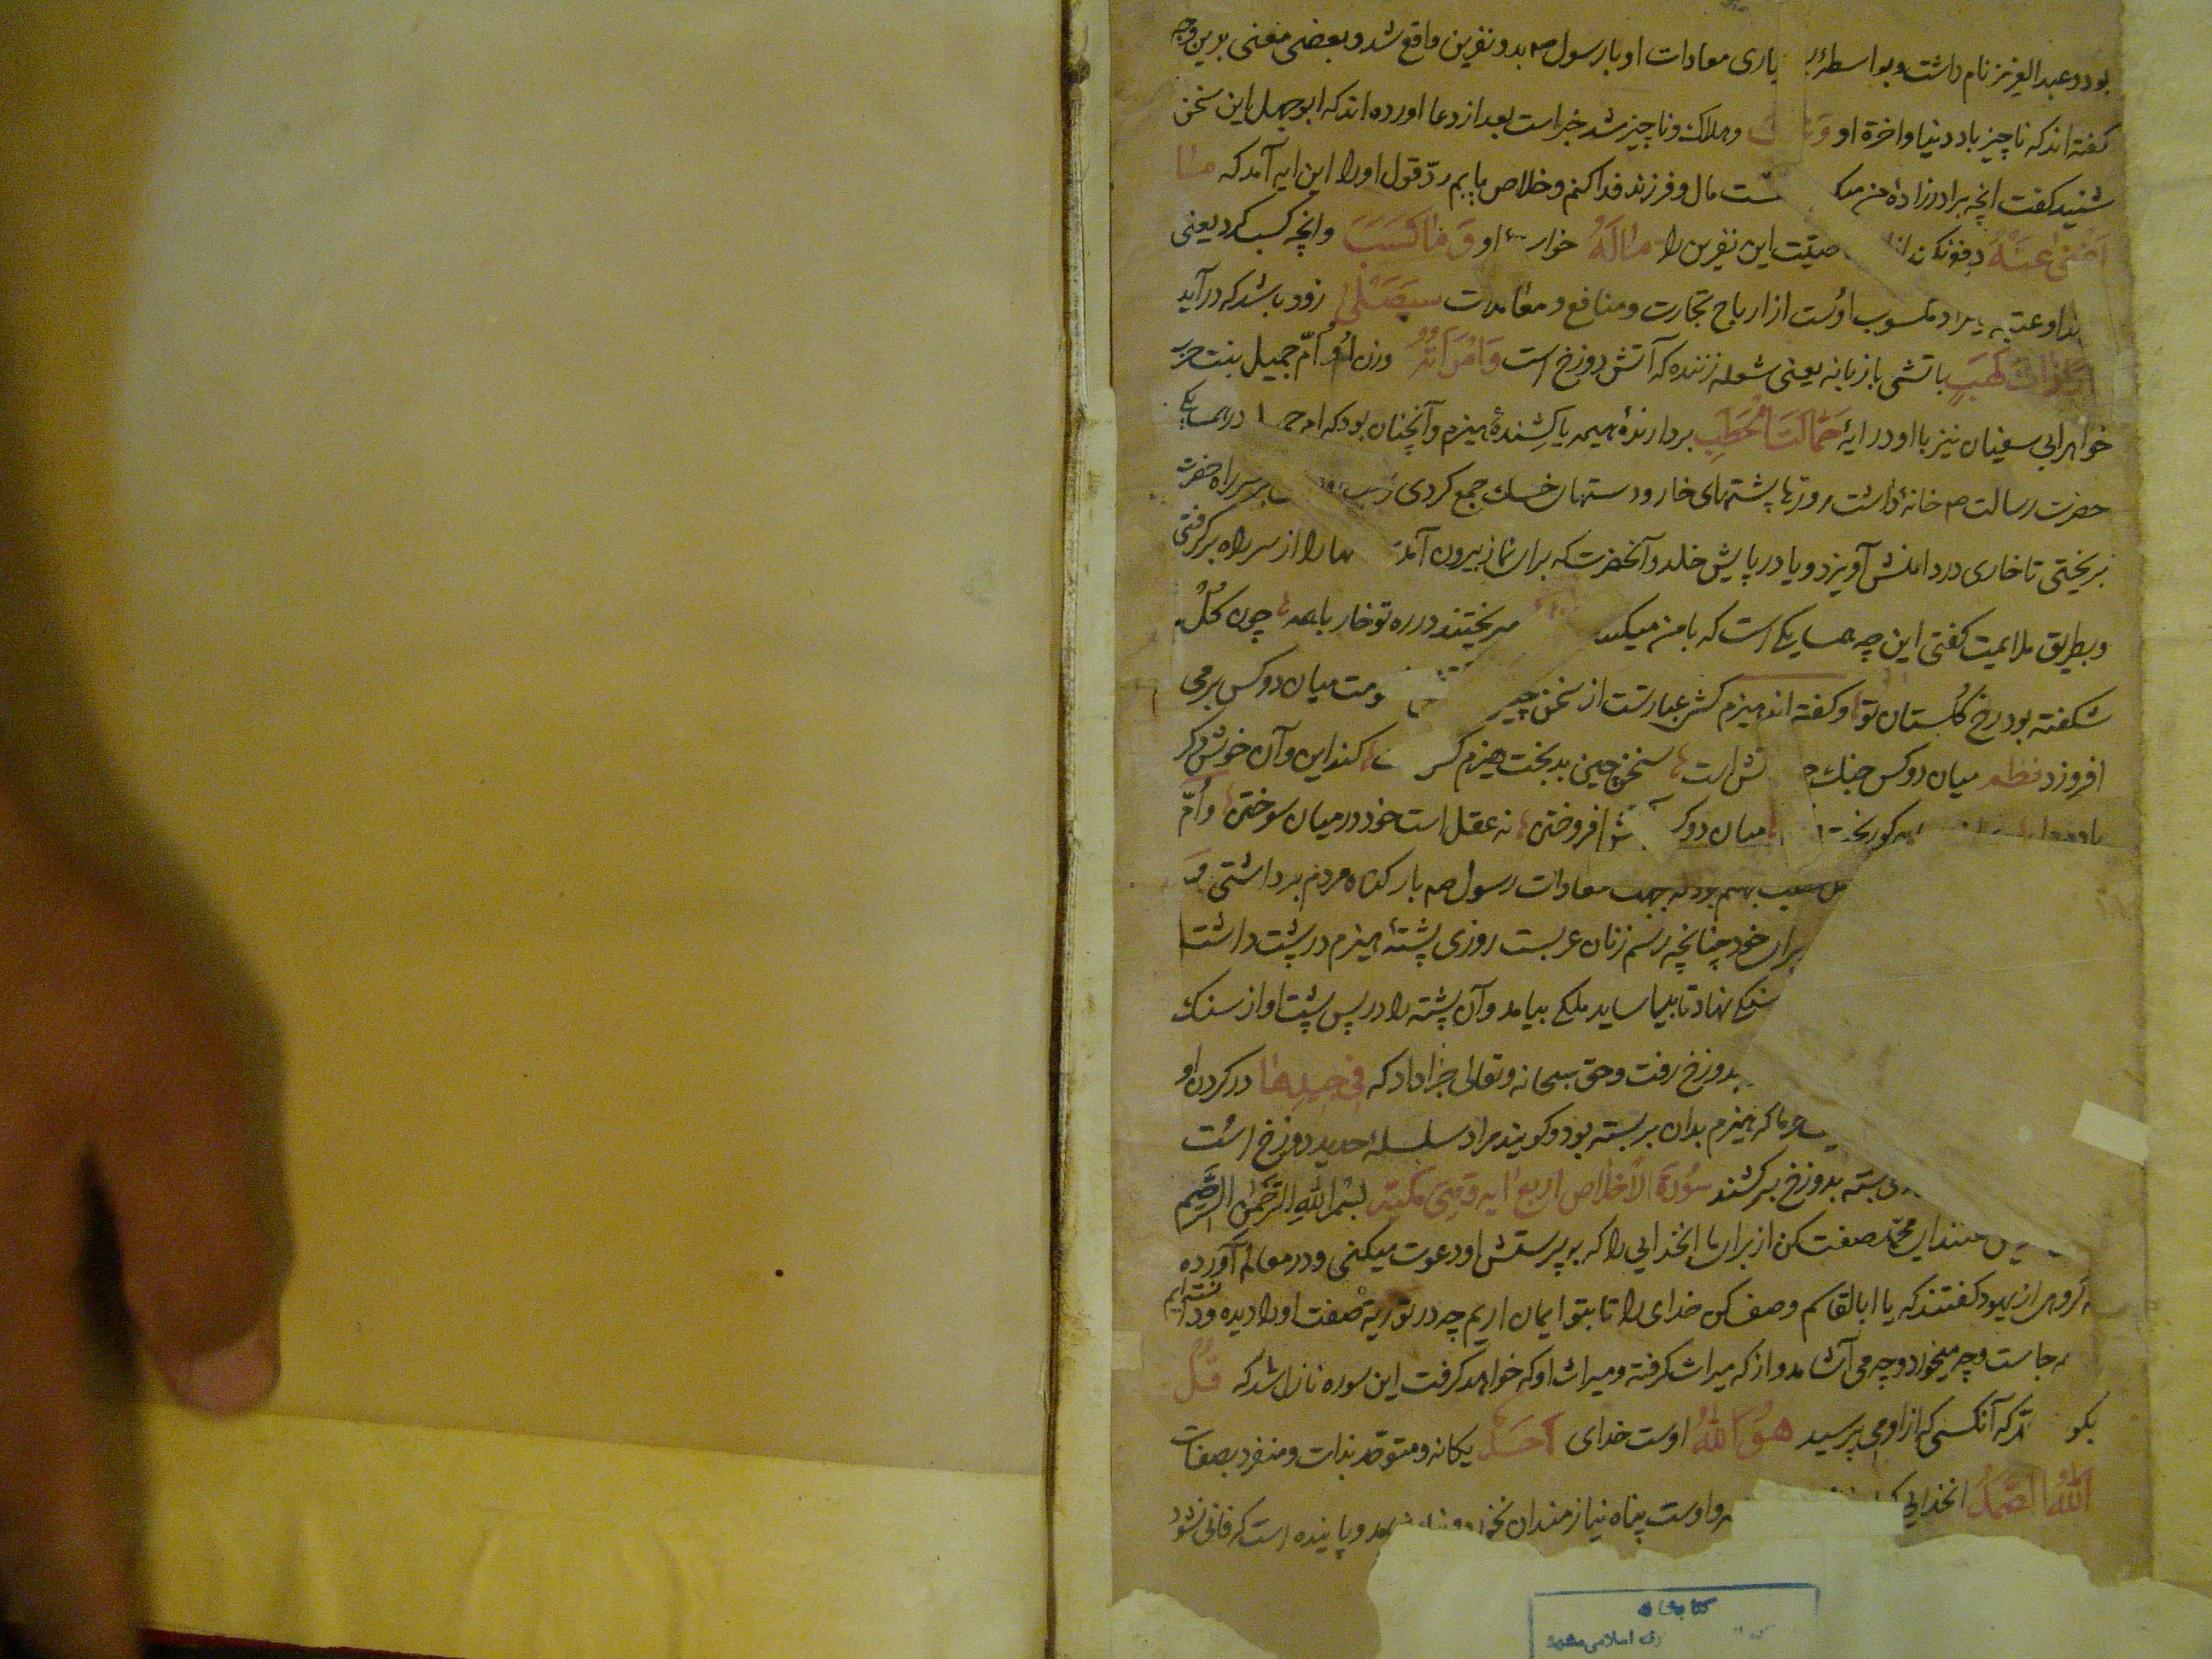 بود و عبد العزیز نام داشت و بواسطهٔ یاری معادات او با رسول صم بدو نفرین واقع شد و بعضی معنی برین وجه
کفته اند که ناچیز باد دنیا و اخرة او وهلاک و ناچیز شد خبر است بعد از دعا اورده اند که ابوجهل این سخن
شنید کفت انچه برادرزادهٔ من مال و فرزند فدا کنم و خلاص یابم ردّ قول او را این ایه آمد که مٰا
اَغْنٰی عَنْهُ دفع نکند این نفرین را مٰالَهُ او وَ مٰا کَسَبَ و انچه کسب کرد یعنی
مکسوب اوست از ارباح تجارت و منافع و معاملات سَیَصْلٰی زود باشد که درآید
ذٰاتَ لَهَبٍ باتشی با زبانه یعنی شعله زننده که آتش دوزخ است وَ امْرَاَتُهُ و زن او اُمّ جمیل بنت حرب
خواهر ابی سفیان نیز با او دراید حَمّٰالَتَ الْحَطَبِ بردارندهٔ هیمه یا کِشندهٔ هیزم و آنچنان بود که در همسایکی
حضرت رسالت صم خانهٔ داشت روزها پشتهای خار و دستهای خسک جمع کردی بر سر راه حضرت
بریختی تا خاری در دامنش آویزد و یا در پایش خلد و آنحضرت که برای نماز بیرون آمدی را از سر راه برکرفتی
و بطریق ملایمت کفتی این چه همسایکی است که با من میکنید میریختند در ره تو خار با همه چون کُل
شکفته بود رخ کُلستان تو و کفته اند هیزم کشی عبارتست از سخن چینی میان دو کس برمی
افروزد نظم میان دو کس جنک چون آتش است سخن چین بدبخت هیزم کش است کنند این و آن خوش دکر
میان دو کس آتش افروختن نه عقل است خود در میان سوختن و اُمّ
بجهت معادات رسول صم بار کناه مردم برداشتی و
برای خود چنانچه رسم زنان عربست روزی پشتهٔ هیزم در پشت داشت
سنکی نهاد تا بیاساید ملکی بیامد و آن پشته را در پس پشت او از سنک
بدوزخ رفت و حق سبحانه و تعالی خبر داد که فی جِیدِهٰا در کردن او
هیزم بدان بربسته بود و کویند مراد سلسلهٔ حدید دوزخ است
بسته بدوزخ برکشند سُورَة الْاِخْلاص اربع ایه وَهِیَ مکیّة بسْمِ اللّٰهِ الرَّحْمٰنِ الرَّحیم
ای محمّد صفت کن از برای ما انخدایی را که به پرستش او دعوت میکنی و در معالم آورده
کروهی از یهود کفتند که یا ابا القاسم وصف کن خدای را تا بتو ایمان اریم چه در توریة صفت او را دیده و دانسته ایم
جاست و چه میخورد و چه می آشامد و از که میراث کرفته و میراث او که خواهد کرفت این سوره نازل شد که قُلْ
بکو که آنکسی که از او می پرسید هُوَ اللّٰهُ اوست خدای اَحَدٌ یکانه و متوحّد بذات و منفرد بصفات
اَللّٰهُ الصَّمَدُ انخدایی و اوست پناه نیازمندان و پاینده است که فانی نشود
کتابخانه
اسلامی مشهد